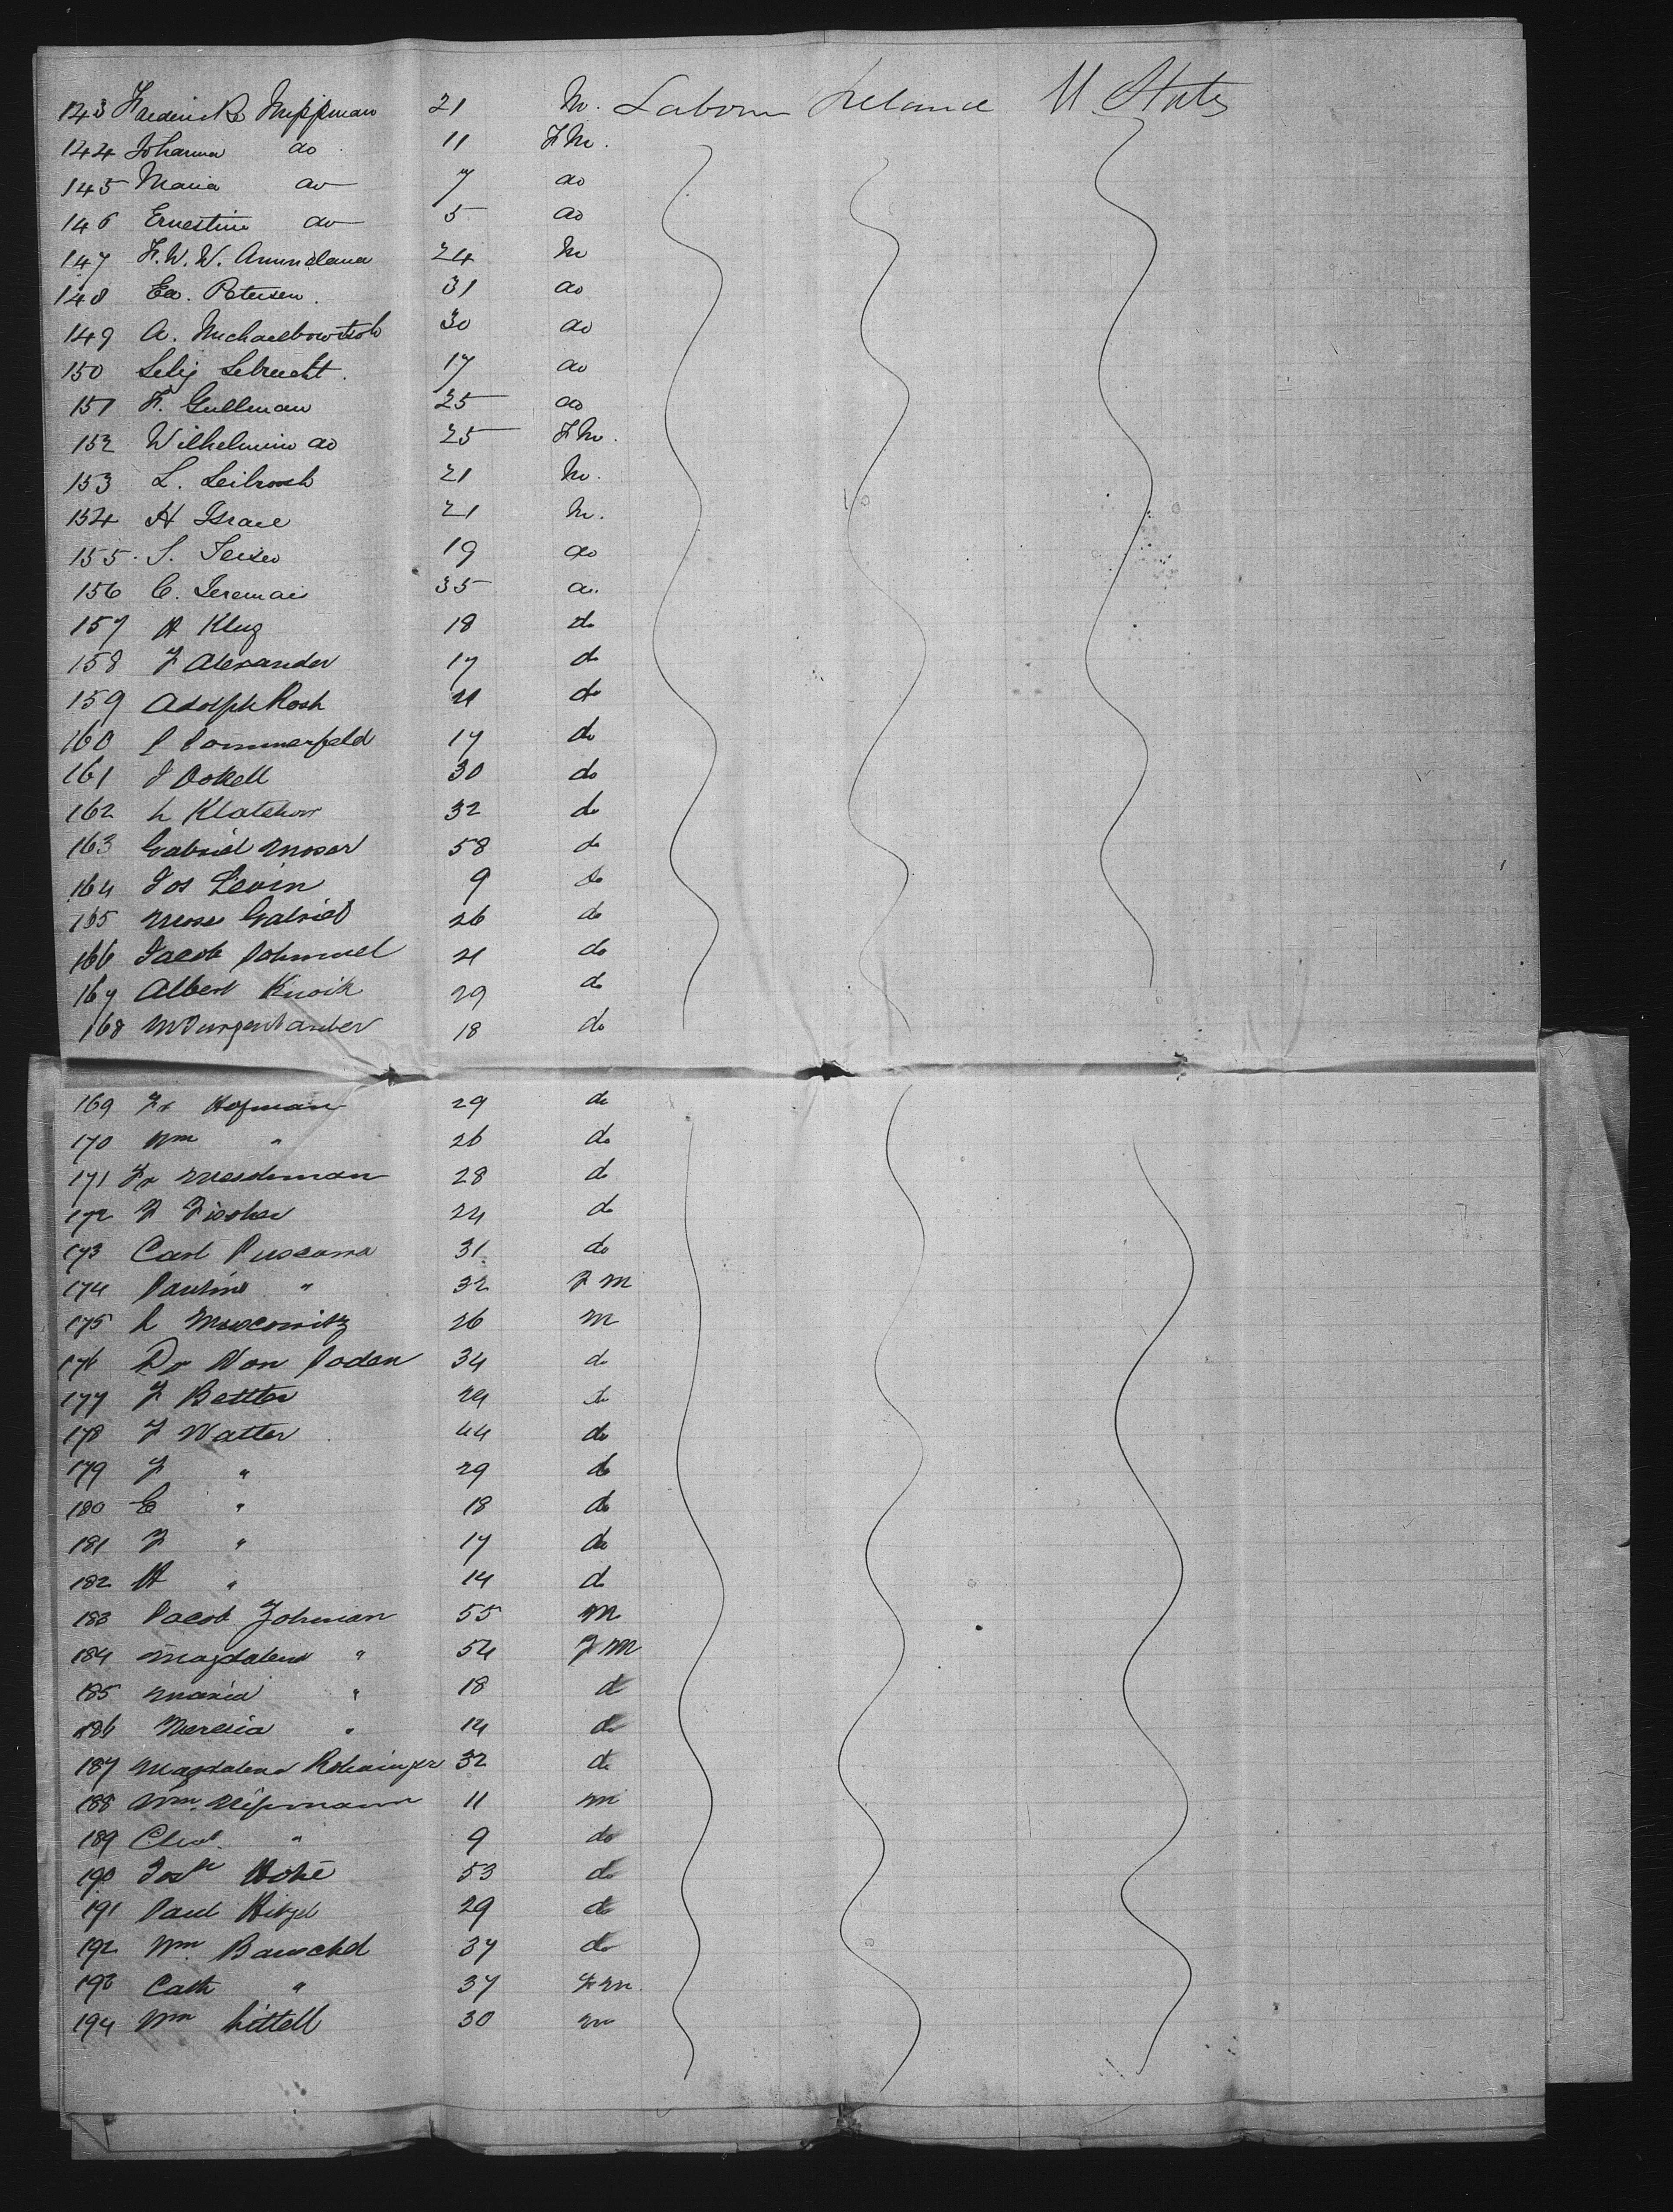 143 Frederick Nuppman 21 M. Labour Ireland U States
144 Johanna do 11 FM.
145 Maria do 7 do
146 Ernestine do 5 do
147 F. W. W. 24 M
148 Ed. Petersen. 31 do
149 A. 30 do
150 Selig 17 do
151 F. Gullman 25 do
152 Wilhelmine do 25 FM.
153 L. 21 M.
154 H Israel 21 M.
155. S. 19 do
156 C. Jeremai 35 do
157 A Klug 18 do
158 F Alexander 17 do
159 Adolph Rosh 21 do
160 S Sommerfeld 17 do
161 J 30 do
162 L 32 do
163 Gabriel Moser 58 do
164 Jos Levin 9 do
165 Mose Gabriel 26 do
166 Jacob 21 do
167 Albert 29 do
168 18 do
169 Fr Hofman 29 do
170 Wm " 26 do
171 Fr 28 do
172 F Fischer 24 do
173 Carl 31 do
174 Pauline " 32 F M
175 L Moscowitz 26 M
176 Dr Von Soden 34 do
177 F Bettler 24 do
178 F Watter 44 do
179 F " 29 do
180 E " 18 do
181 F " 17 do
182 H " 14 do
183 Jacob Johman 55 M
184 Magdalena " 54 F M
185 Maria " 18 d
186 Theresia " 14 do
187 Magdalena 32 do
188 Wm. 11 M
189 " 9 do
190 Josh 53 do
191 Paul 29 do
192 Wm. Bauschel 37 do
193 Cath " 37 F M.
194 Wm Littell 30 M